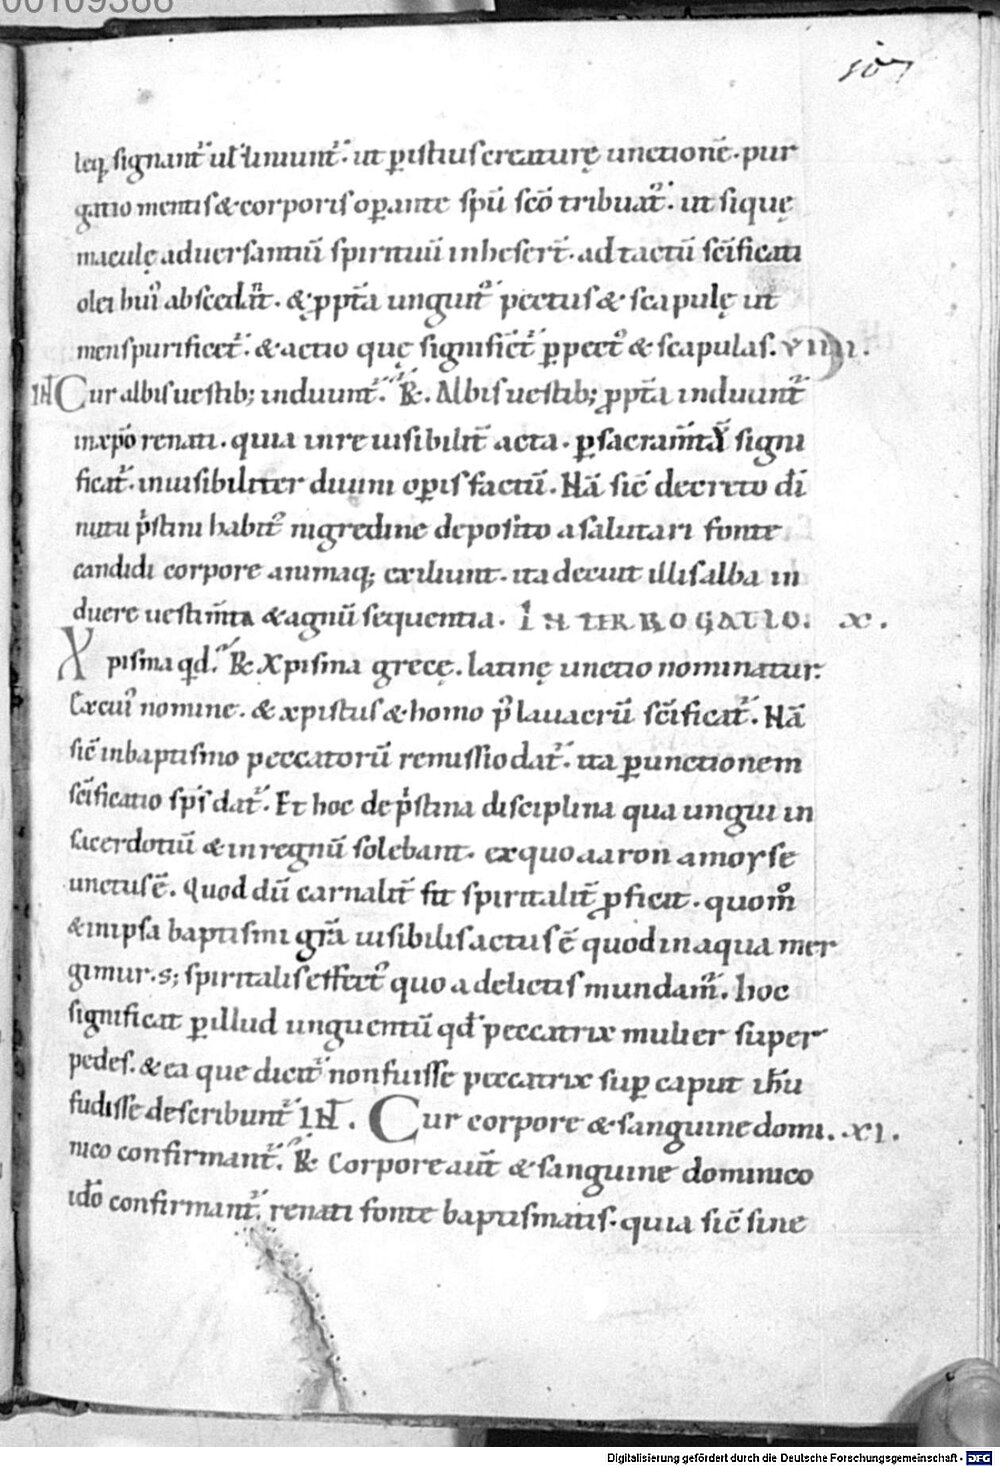 00109388
107
leq; signant᷑ ul̄ liniunt᷑. ut p̲ istius creaturę unctionē. pur
gatio mentis & corporis op̲ante sp̄u sc̄o tribuat᷑. ut si quę
maculę aduersantiū spirituū inheser̄t. ad tactū sc̄ificati
olei hui᷒ abscedār̄t. & p̱pt̄a unguit᷑ pectus & scapulę ut
mens purificet᷑. & actio quę signific̄t᷑ p̲ pect᷒ & scapulas. VIIII.
INT Cur albis uestib; induunt᷑. R̸. Albis uestib; p̱pt̄a induunt᷑
in xp̄o renati. quia in re uisibilit̄ acta. p̲ sacram̄tū signi
ficat᷑. inuisibiliter diuini op̲is factū. Nā sic̄ decreto dī
nutu p̓stini habit᷒ nigredine deposito a salutari fonte
candidi corpore animaq; exiliunt. ita decuit illis alba in
duere uestim̄ta & agnū sequentia. INTERROGATIO. X.
Xpisma qd̄. R̸. Xpisma grecę. latinę unctio nominatur.
Ex cui᷒ nomine. & xpistus & homo p᷒ lauacrū sc̄ificat᷑. Nā
sic̄ in baptismo peccatorū remissio dat᷑. ita p̲ unctionem
sc̄ificatio sp̄s dat᷑. Et hoc de p̓stina disciplina qua ungui in
sacerdotiū & in regnū solebant. ex quo aaron a moyse
unctus ē. Quod dū carnalit̄ fit spiritalit̄ p̱ficit. quom̊
& in ipsa baptismi gr̄a uisibilis actus ē quod in aqua mer
gimur. s; spiritalis effect᷒ quo a delictis mundam᷒. hoc
significat p̲ illud unguentū qd̄ peccatrix mulier super
pedes. & ea que dicit᷑ non fuisse peccatrix sup̲ caput ih̄u
fudisse describunt᷑ INT. Cur corpore & sanguine domi. XI.
nico confirmant᷑. R̸. Corpore aut̄ & sanguine dominico
id̄o confirmant᷑. renati fonte baptismatis. quia sic̄ sine
Digitalisierung gefördert durch die Deutsche Forschungsgemeinschaft - DFG